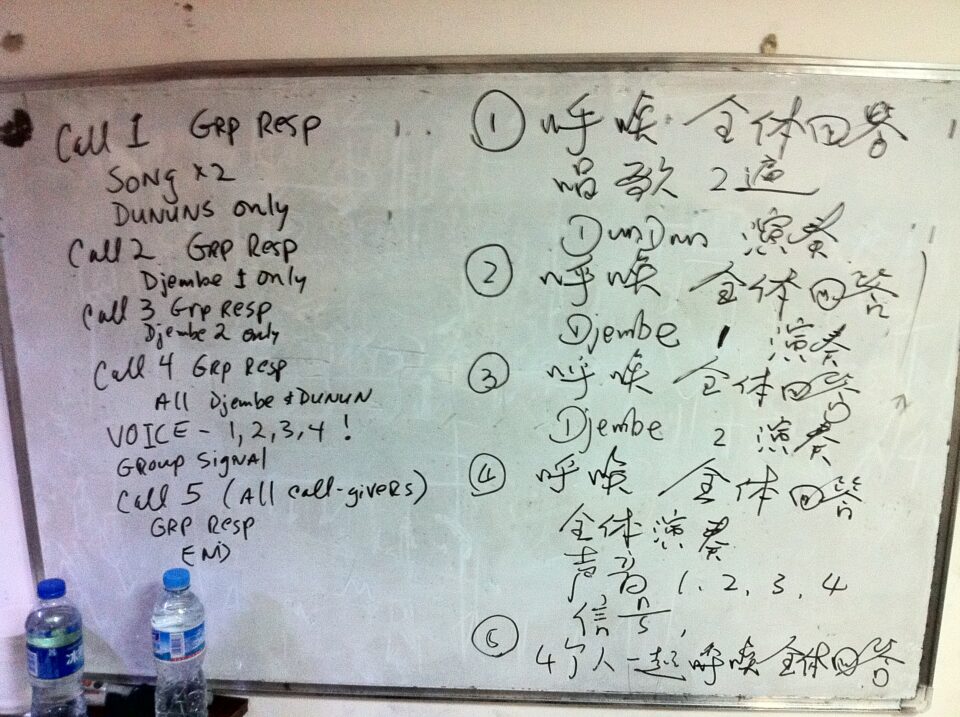 Call 1 GRP Resp
SONG x2
DUNUNS only
Call 2 GRP Resp
Djembe 1 only
Call 3 Grp Resp
Djembe 2 only
Call 4 GRP Resp
All Djembe & DUNUN
VOICE - 1, 2, 3, 4 !
GROUP SIGNAL
Call 5 (All call-givers)
GRP Resp
END
① 呼唤 全体回答
唱歌 2遍
DunDun 演奏
② 呼唤 全体回答
Djembe 1 演奏
③ 呼唤 全体回答
Djembe 2 演奏
④ 呼唤 全体回答
全体演奏
声音 1、2、3、4
信号
⑤ 4个人一起呼唤 全体回答